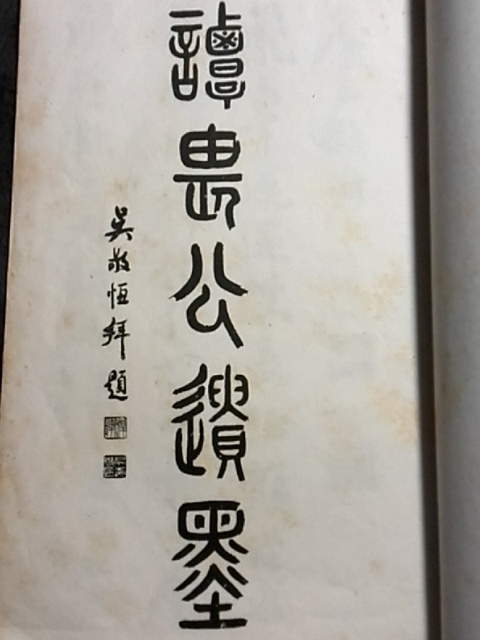 譚畏公遺墨
吳敬恆拜題